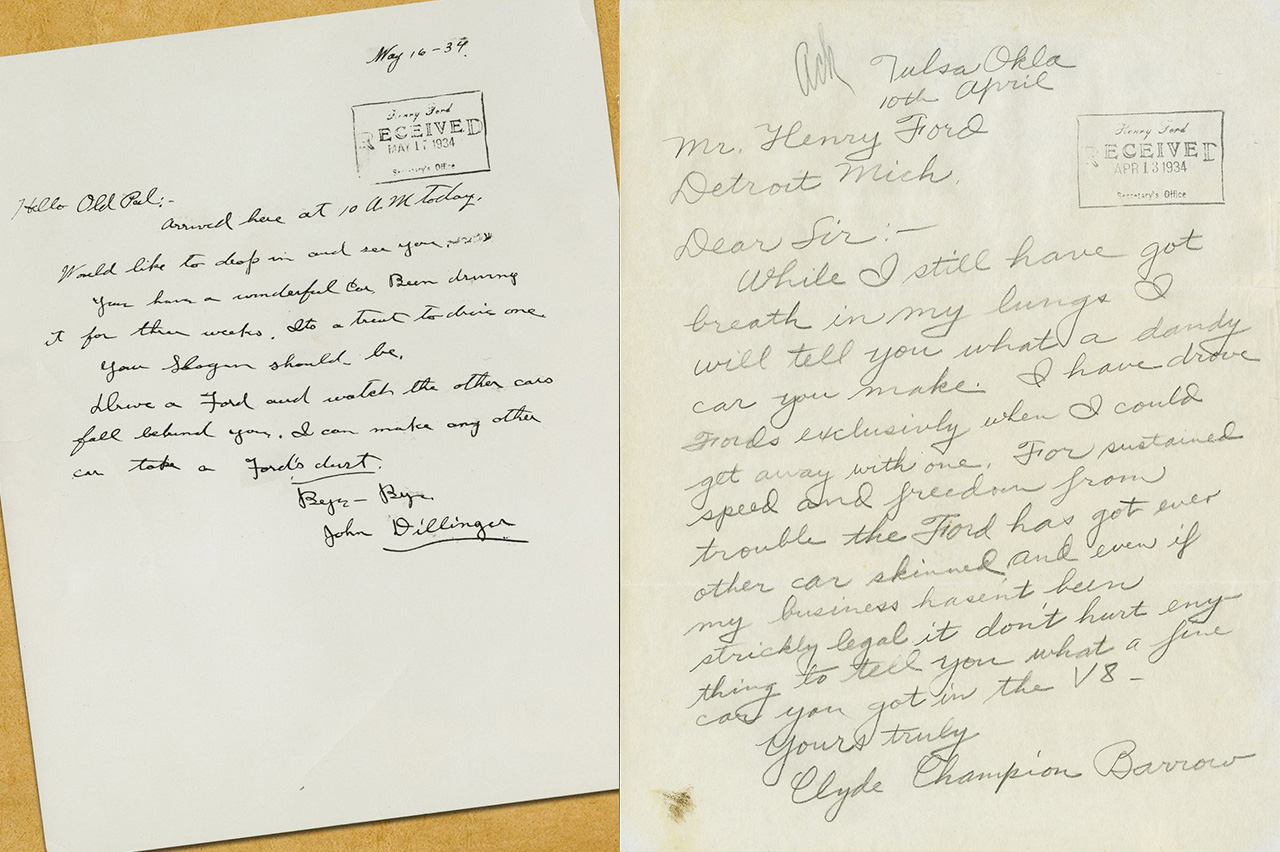 May 16-34.
Henry Ford
RECEIVED
MAY 17 1934
Secretary's Office
Hello Old Pal:-
Arrived here at 10 AM today.
Would like to drop in and see you.
You have a wonderful Car. Been driving
it for three weeks. Its a treat to drive one.
Your Slogan should be.
Drive a Ford and watch the other cars
fall behind you. I can make any other
car take a Ford's dust.
Bye - Bye.
John Dillinger
Ack
Tulsa Okla
10th April
Henry Ford
RECEIVED
APR 13 1934
Secretary's Office
Mr. Henry Ford
Detroit Mich.
Dear Sir:-
While I still have got
breath in my lungs I
will tell you what a dandy
car you make. I have drove
Fords exclusivly when I could
get away with one. For sustained
speed and freedom from
trouble the Ford has got ever
other car skinned and even if
my business hasen't been
strickly legal it don't hurt eny-
thing to tell you what a fine
car you got in the V8 -
Yours truly
Clyde Champion Barrow